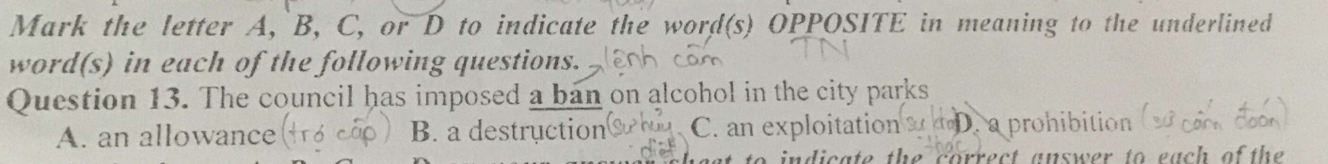 Mark the letter A, B, C, or D to indicate the word(s) OPPOSITE in meaning to the underlined
TN
word(s) in each of the following questions. lệnh cấm
Question 13. The council has imposed a ban on alcohol in the city parks
A. an allowance (trợ cấp) B. a destruction (sự hủy diệt C. an exploitation (sự D. a prohibition (sự cấm đoán)
answer sheet to indicate the correct answer to each of the